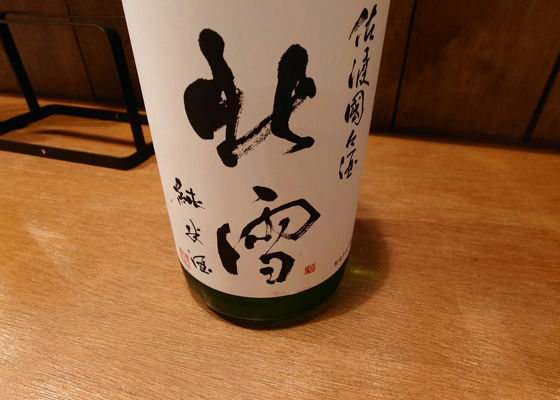 佐渡國の酒
北雪
純米酒